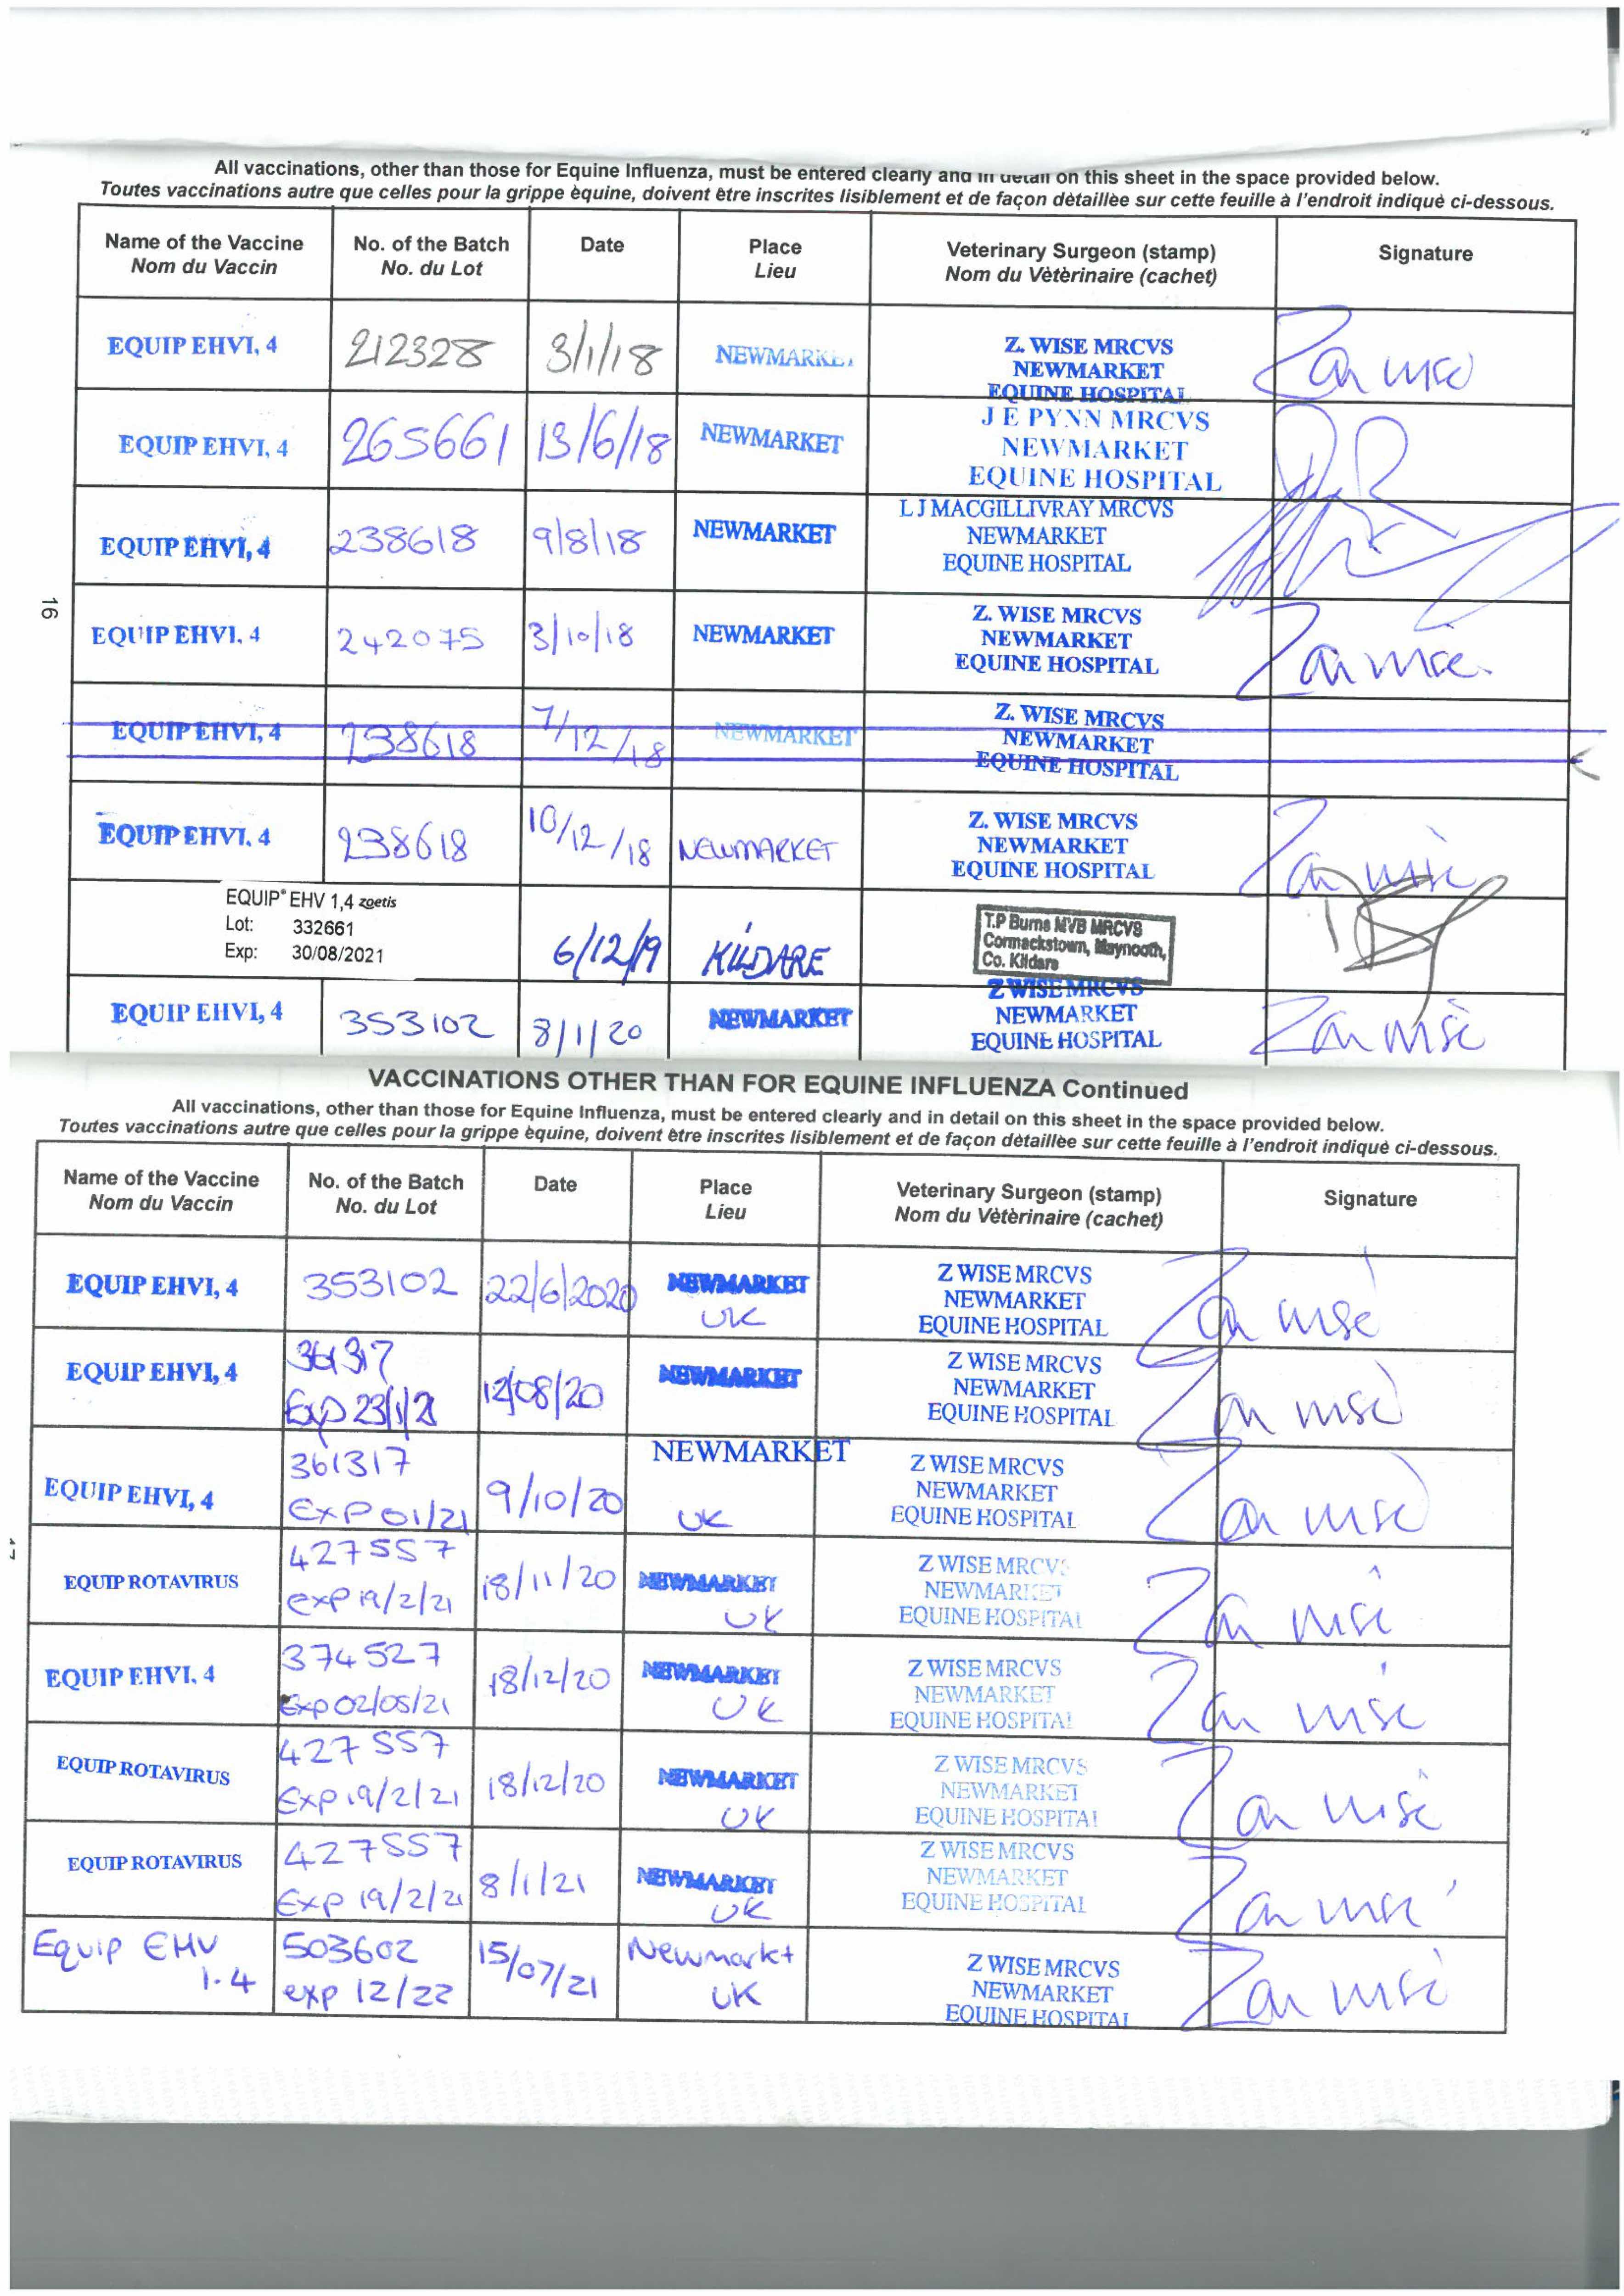 All vaccinations, other than those for Equine Influenza, must be entered clearly and in detail on this sheet in the space provided below.
Toutes vaccinations autre que celles pour la grippe èquine, doivent être inscrites lisiblement et de façon dètaillèe sur cette feuille à l'endroit indiquè ci-dessous.
Name of the Vaccine No. of the Batch Date Place Veterinary Surgeon (stamp) Signature
Nom du Vaccin No. du Lot Lieu Nom du Vètèrinaire (cachet)
EQUIP EHVI, 4 212328 3/1/18 NEWMARKET Z. WISE MRCVS
NEWMARKET
EQUINE HOSPITAL
EQUIP EHVI, 4 265661 13/6/18 NEWMARKET J E PYNN MRCVS
NEWMARKET
EQUINE HOSPITAL
EQUIP EHVI, 4 238618 9/8/18 NEWMARKET L J MACGILLIVRAY MRCVS
NEWMARKET
EQUINE HOSPITAL
16
EQUIP EHVI, 4 242075 3/10/18 NEWMARKET Z. WISE MRCVS
NEWMARKET
EQUINE HOSPITAL
EQUIP EHVI, 4 238618 7/12/18 NEWMARKET Z. WISE MRCVS
NEWMARKET
EQUINE HOSPITAL
EQUIP EHVI, 4 238618 10/12/18 NEWMARKET Z. WISE MRCVS
NEWMARKET
EQUINE HOSPITAL
EQUIP® EHV 1,4 zoetis
Lot: 332661
Exp: 30/08/2021
6/12/19 KILDARE T.P Burns MVB MRCVS
Cormackstown, Maynooth,
Co. Kildare
EQUIP EHVI, 4 353102 8/1/20 NEWMARKET Z WISE MRCVS
NEWMARKET
EQUINE HOSPITAL
VACCINATIONS OTHER THAN FOR EQUINE INFLUENZA Continued
All vaccinations, other than those for Equine Influenza, must be entered clearly and in detail on this sheet in the space provided below.
Toutes vaccinations autre que celles pour la grippe èquine, doivent être inscrites lisiblement et de façon dètaillèe sur cette feuille à l'endroit indiquè ci-dessous.
Name of the Vaccine No. of the Batch Date Place Veterinary Surgeon (stamp) Signature
Nom du Vaccin No. du Lot Lieu Nom du Vètèrinaire (cachet)
EQUIP EHVI, 4 353102 22/6/2020 NEWMARKET Z WISE MRCVS
UK NEWMARKET
EQUINE HOSPITAL
EQUIP EHVI, 4 361317 12/08/20 NEWMARKET Z WISE MRCVS
Exp 23/1/21 NEWMARKET
EQUINE HOSPITAL
EQUIP EHVI, 4 361317 9/10/20 NEWMARKET Z WISE MRCVS
Exp 01/21 UK NEWMARKET
EQUINE HOSPITAL
EQUIP ROTAVIRUS 427557 18/11/20 NEWMARKET Z WISE MRCVS
exp 19/2/21 UK NEWMARKET
EQUINE HOSPITAL
EQUIP EHVI, 4 374527 18/12/20 NEWMARKET Z WISE MRCVS
Exp 02/05/21 UK NEWMARKET
EQUINE HOSPITAL
EQUIP ROTAVIRUS 427557 18/12/20 NEWMARKET Z WISE MRCVS
Exp 19/2/21 UK NEWMARKET
EQUINE HOSPITAL
EQUIP ROTAVIRUS 427557 8/1/21 NEWMARKET Z WISE MRCVS
Exp 19/2/21 UK NEWMARKET
EQUINE HOSPITAL
Equip EHV 503602 15/07/21 Newmarkt Z WISE MRCVS
1.4 exp 12/22 UK NEWMARKET
EQUINE HOSPITAL